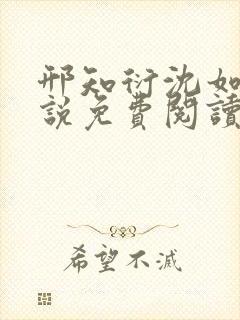 邢知衍沈如
說免費閱讀
希望不滅